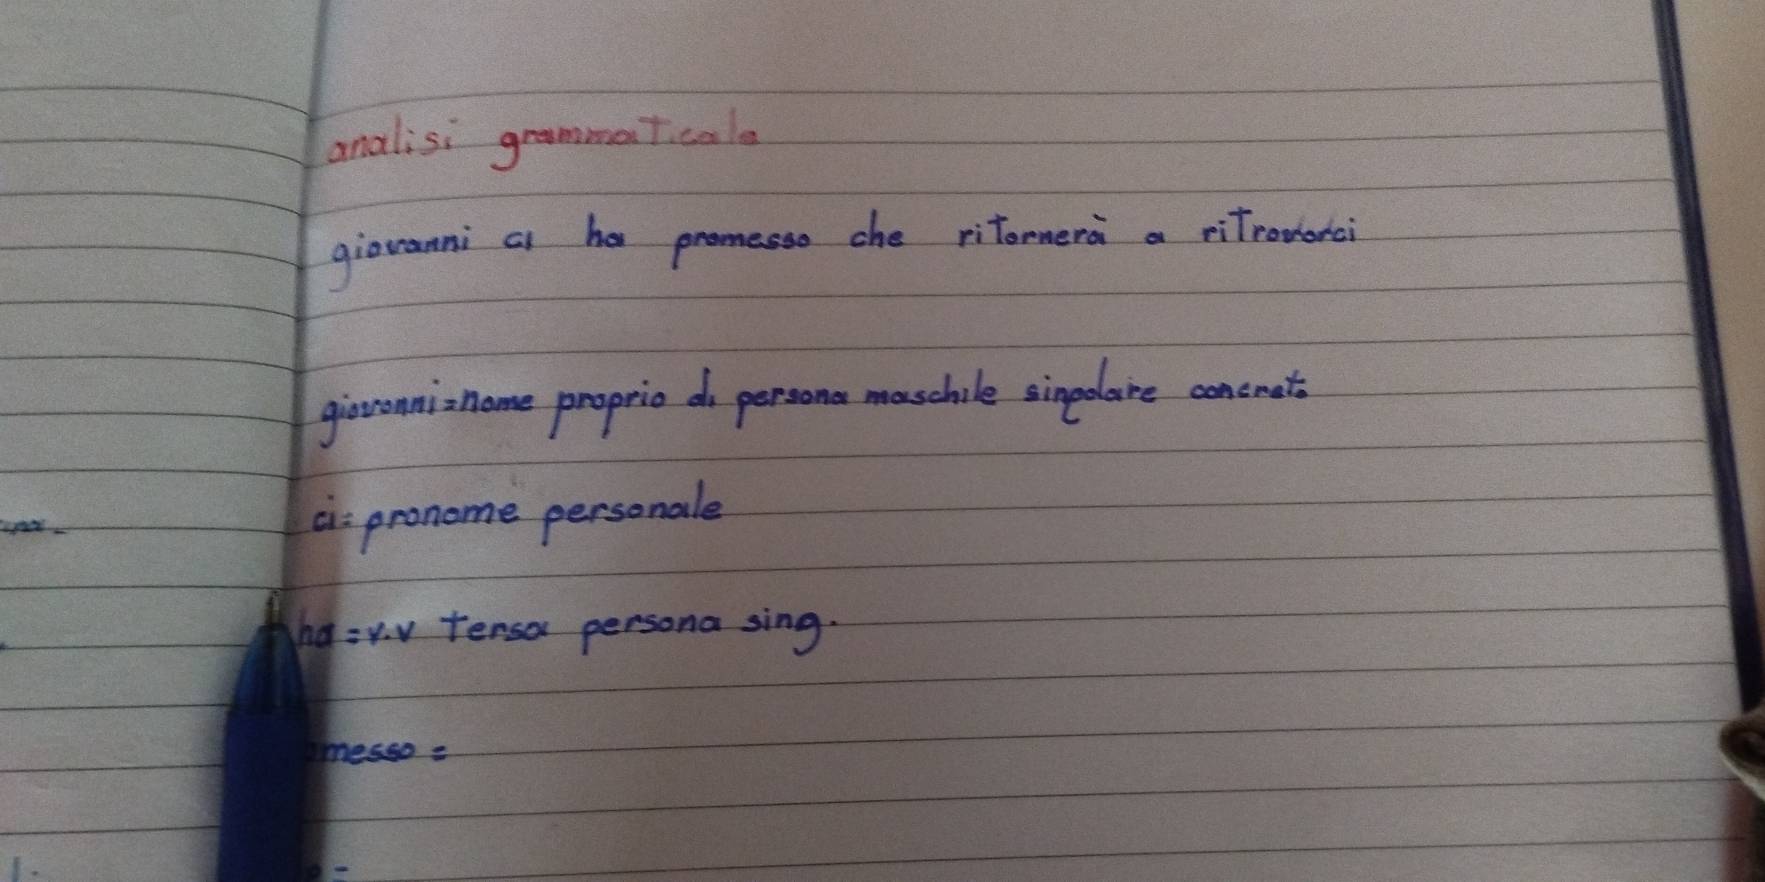 analisi grammaticale
giovanni ci ha promesso che ritornerà a ritrovarci
giovanni=nome proprio di persona maschile singolare concreto
ci= pronome personale
ha = v.v tersa persona sing.
messo =